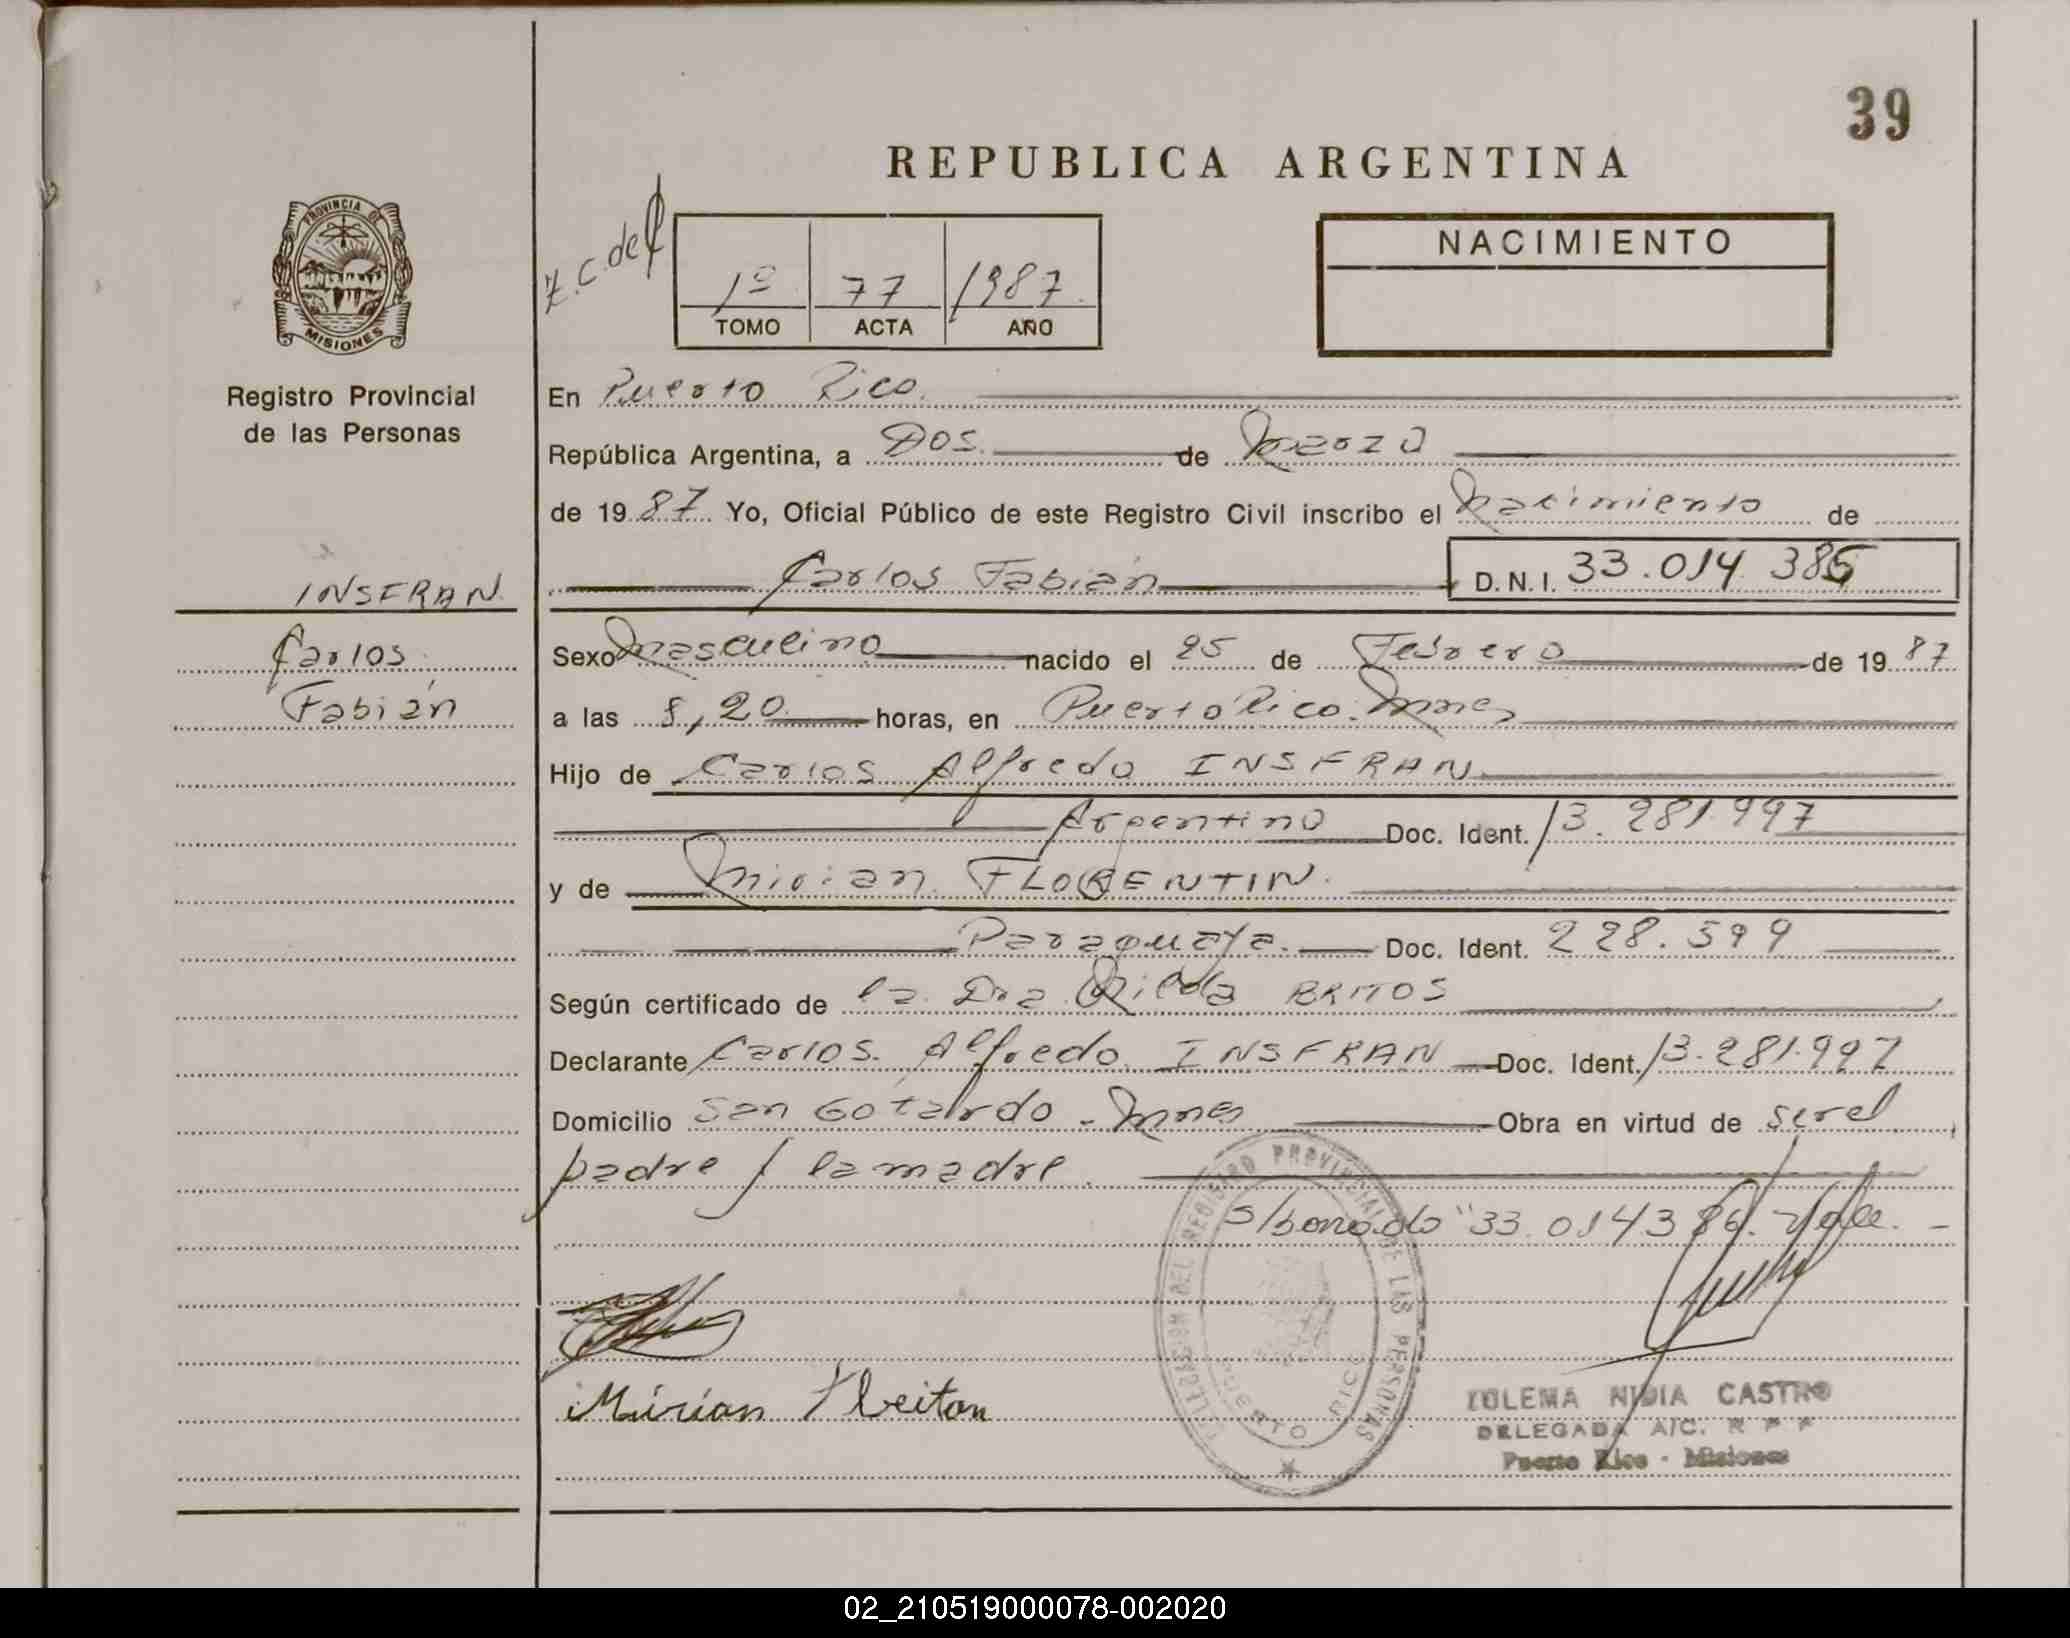 39
REPUBLICA ARGENTINA
PROVINCIA DE
MISIONES
Registro Provincial
de las Personas
1º 77 1987
TOMO ACTA AÑO
NACIMIENTO
En Puerto Rico
República Argentina, a Dos de Marzo
de 1987 Yo, Oficial Público de este Registro Civil inscribo el Nacimiento de
INSFRAN
Carlos Fabián D.N.I. 33.014.386
Carlos
Fabián
Sexo Masculino nacido el 25 de Febrero de 1987
a las 8,20 horas, en Puerto Rico. Mnes
Hijo de Carlos Alfredo INSFRAN
Argentino Doc. Ident. 13.281.997
y de Mirian FLORENTIN.
Paraguaya. Doc. Ident. 228.599
Según certificado de la Dra BRITOS
Declarante Carlos Alfredo INSFRAN Doc. Ident. 13.281.997
Domicilio San Gotardo - Mnes Obra en virtud de ser el
padre y la madre.
S/borrado "33.014386. Vale. -
DELEGACION DEL REGISTRO PROVINCIAL DE LAS PERSONAS
PUERTO RICO
Mirian
ZULEMA NIDIA CASTRO
DELEGADA A/C. R P P
Puerto Rico - Misiones
02_210519000078-002020